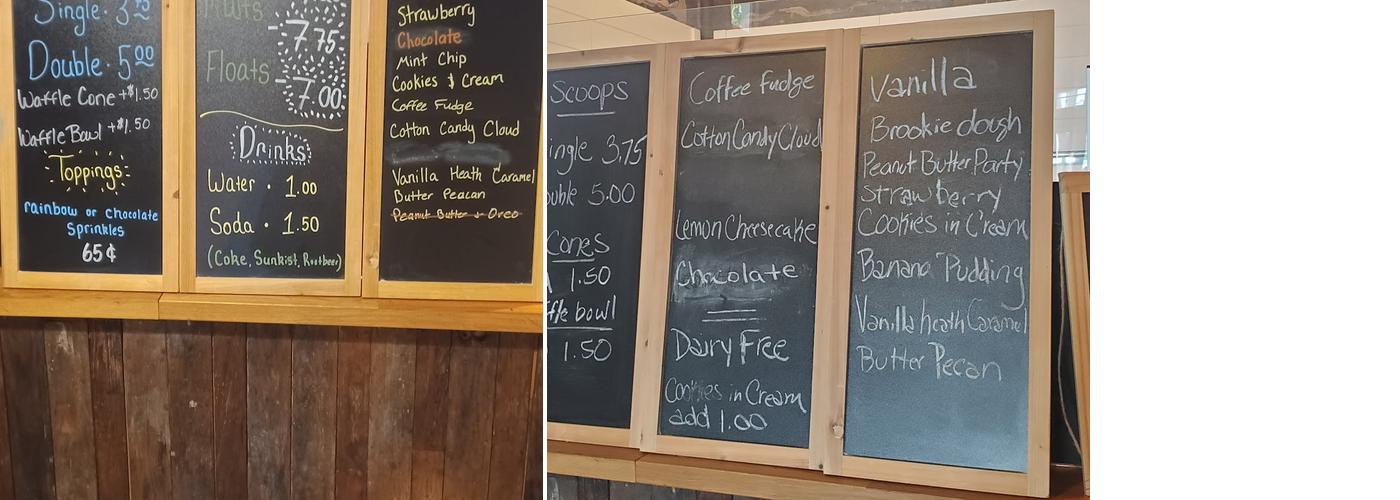 Single · 3.75
Double · 5.00
Waffle Cone +$1.50
Waffle Bowl +$1.50
Toppings
rainbow or chocolate
Sprinkles
65¢
Malts
7.75
Floats
7.00
Drinks
Water · 1.00
Soda · 1.50
(Coke, Sunkist, Rootbeer)
Strawberry
Chocolate
Mint Chip
Cookies & Cream
Coffee Fudge
Cotton Candy Cloud
Vanilla Heath Caramel
Butter Peacan
Peanut Butter & Oreo
Scoops
ingle 3.75
ouble 5.00
Cones
1.50
ffle bowl
1.50
Coffee Fudge
Cotton Candy Cloud
Lemon Cheesecake
Chocolate
Dairy Free
Cookies in Cream
add 1.00
Vanilla
Brookie dough
Peanut Butter Party
Strawberry
Cookies in Cream
Banana Pudding
Vanilla heath Caramel
Butter Pecan